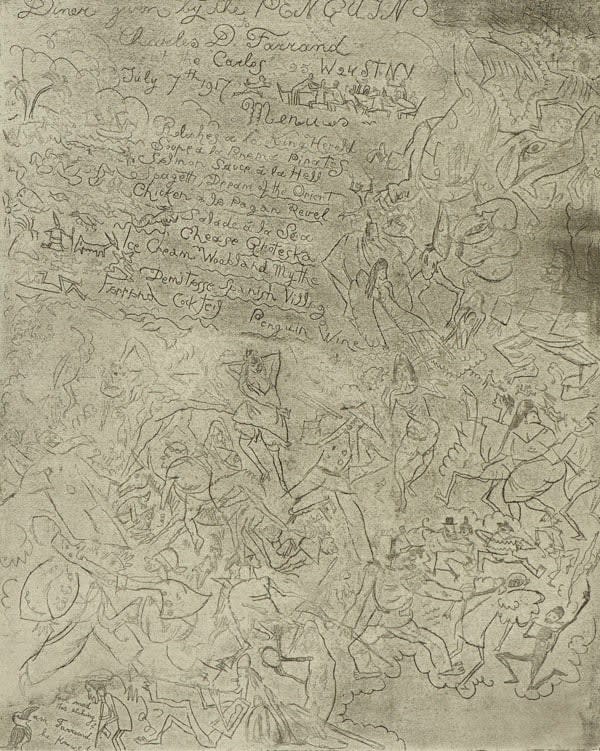 Diner given by the PENGUINS
to
Charles D Farrand
at the Carlos 25 W 24 ST NY
July 7th 1917
Menu
Relishes a la King Herold
Soupe a la Poeme Pirates
Salmon Sauce a la Hell
Spagetti Dream of the Orient
Chicken a la Pagan Revel
Salade a la Sea
Chease Groteska
Ice Cream Woodland Mythe
Demitasse Spanish Village
Farrand Cocktail
Penguin Wine
this etching
Farrand